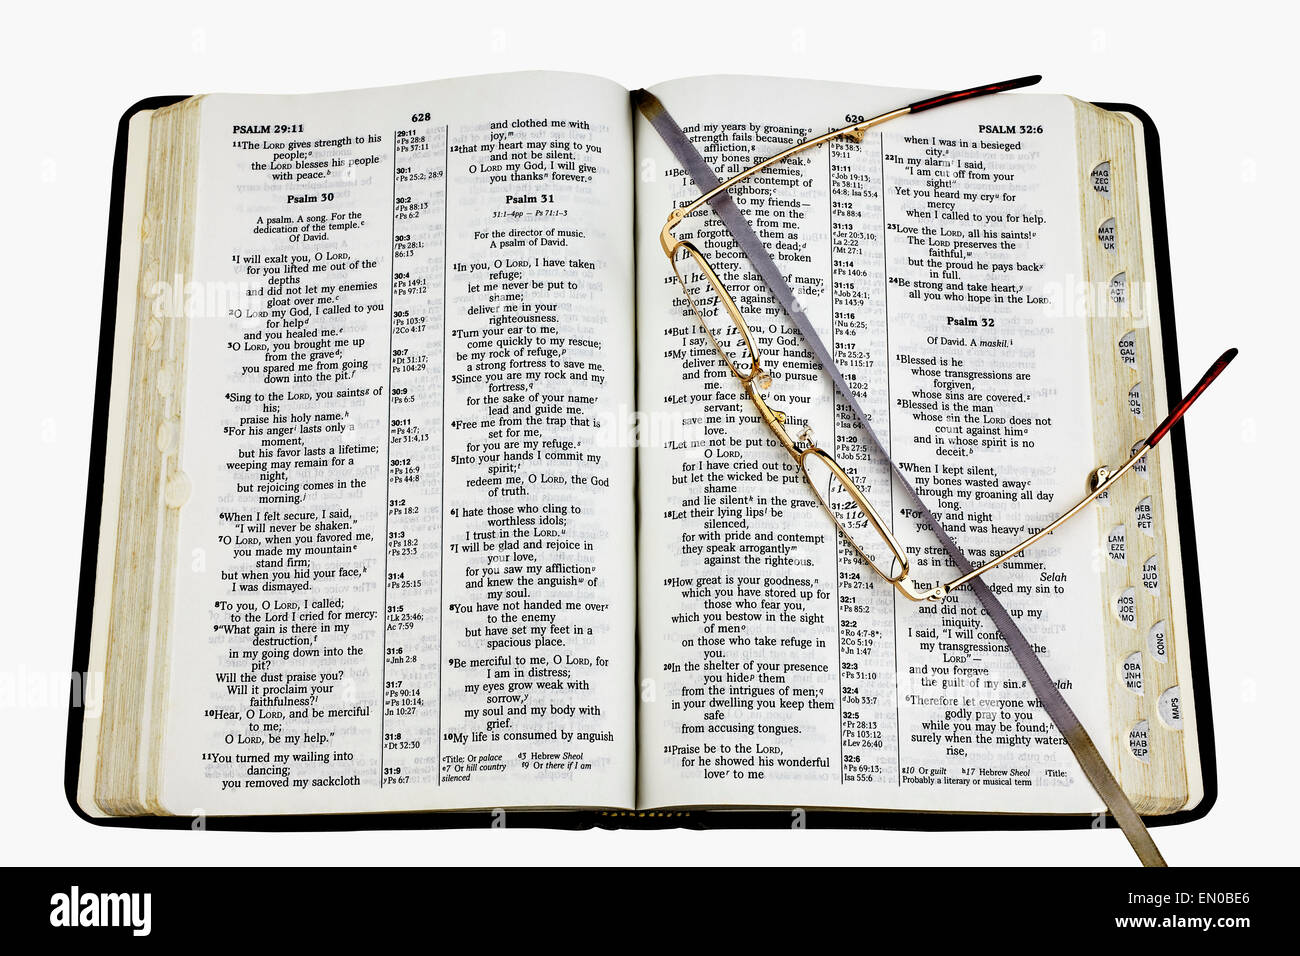 PSALM 29:11
628
11The LORD gives strength to his
people;a
the LORD blesses his people
with peace.b
Psalm 30
A psalm. A song. For the
dedication of the temple.c
Of David.
1I will exalt you, O LORD,
for you lifted me out of the
depths
and did not let my enemies
gloat over me.e
2O LORD my God, I called to you
for help
and you healed me.
3O LORD, you brought me up
from the grave;
you spared me from going
down into the pit.f
4Sing to the LORD, you saints of
his;
praise his holy name.h
5For his anger lasts only a
moment,
but his favor lasts a lifetime;
weeping may remain for a
night,
but rejoicing comes in the
morning.
6When I felt secure, I said,
"I will never be shaken."
7O LORD, when you favored me,
you made my mountain
stand firm;
but when you hid your face,k
I was dismayed.
8To you, O LORD, I called;
to the Lord I cried for mercy:
9"What gain is there in my
destruction,
in my going down into the
pit?
Will the dust praise you?
Will it proclaim your
faithfulness?
10Hear, O LORD, and be merciful
to me;
O LORD, be my help."
11You turned my wailing into
dancing;
you removed my sackcloth
29:11
a Ps 28:8
b Ps 37:11
30:1
c Ps 25:2; 28:9
30:2
d Ps 88:13
e Ps 6:2
30:3
f Ps 28:1;
86:13
30:4
g Ps 149:1
h Ps 97:12
30:5
i Ps 103:9
j 2Co 4:17
30:7
k Dt 31:17;
Ps 104:29
30:9
l Ps 6:5
30:11
m Ps 4:7;
Jer 31:4,13
30:12
n Ps 16:9
o Ps 44:8
31:2
p Ps 18:2
31:3
q Ps 18:2
r Ps 23:3
31:4
s Ps 25:15
31:5
t Lk 23:46;
Ac 7:59
31:6
u Jnh 2:8
31:7
v Ps 90:14
w Ps 10:14;
Jn 10:27
31:8
x Dt 32:30
31:9
y Ps 6:7
and clothed me with
joy,m
12that my heart may sing to you
and not be silent.
O LORD my God, I will give
you thanks forever.o
Psalm 31
31:1-4pp — Ps 71:1-3
For the director of music.
A psalm of David.
1In you, O LORD, I have taken
refuge;
let me never be put to
shame;
deliver me in your
righteousness.
2Turn your ear to me,
come quickly to my rescue;
be my rock of refuge,p
a strong fortress to save me.
3Since you are my rock and my
fortress,q
for the sake of your name
lead and guide me.
4Free me from the trap that is
set for me,
for you are my refuge.s
5Into your hands I commit my
spirit;t
redeem me, O LORD, the God
of truth.
6I hate those who cling to
worthless idols;
I trust in the LORD.u
7I will be glad and rejoice in
your love,
for you saw my affliction
and knew the anguish of
my soul.
8You have not handed me over
to the enemy
but have set my feet in a
spacious place.
9Be merciful to me, O LORD, for
I am in distress;
my eyes grow weak with
sorrow,y
my soul and my body with
grief.
10My life is consumed by anguish
cTitle: Or palace d3 Hebrew Sheol
e7 Or hill country f9 Or there if I am
silenced
629
PSALM 32:6
and my years by groaning;
strength fails because of
affliction,g
my bones grow weak.
all my enemies,
I am the utter contempt of
neighbors;c
to my friends—
those who see me on the
street flee from me.
forgotten by them as
though dead;
have become like broken
pottery.
hear the slander of many;
terror on every side;
against
take my
14But I trust in you, O LORD;
I say, "You are my God."
15My times are in your hands;
deliver me from my enemies
and from those who pursue
me.
16Let your face shine on your
servant;
save me in your unfailing
love.
17Let me not be put to shame,
O LORD,
for I have cried out to you;
but let the wicked be put to
shame
and lie silent in the grave.
18Let their lying lips be
silenced,
for with pride and contempt
they speak arrogantly
against the righteous.
19How great is your goodness,n
which you have stored up for
those who fear you,
which you bestow in the sight
of men
on those who take refuge in
you.
20In the shelter of your presence
you hide them
from the intrigues of men;q
in your dwelling you keep them
safe
from accusing tongues.
21Praise be to the LORD,
for he showed his wonderful
love to me
31:11
c Job 19:13;
Ps 38:11;
64:8; Isa 53:4
31:12
d Ps 88:4
31:13
e Jer 20:3,10;
La 2:22
f Mt 27:1
31:14
g Ps 140:6
31:15
h Job 24:1;
Ps 143:9
31:16
i Nu 6:25;
Ps 4:6
31:17
j Ps 25:2-3
k Ps 115:17
31:20
31:22
31:24
v Ps 27:14
32:1
w Ps 85:2
32:2
a Ro 4:7-8*;
2Co 5:19
b Jn 1:47
32:3
c Ps 31:10
32:4
d Job 33:7
32:5
e Pr 28:13
f Ps 103:12
g Lev 26:40
32:6
h Ps 69:13;
Isa 55:6
when I was in a besieged
city.
22In my alarm I said,
"I am cut off from your
sight!"
Yet you heard my cry for
mercy
when I called to you for help.
23Love the LORD, all his saints!
The LORD preserves the
faithful,w
but the proud he pays back
in full.
24Be strong and take heart,y
all you who hope in the LORD.
Psalm 32
Of David. A maskil.i
1Blessed is he
whose transgressions are
forgiven,
whose sins are covered.z
2Blessed is the man
whose sin the LORD does not
count against him
and in whose spirit is no
deceit.b
3When I kept silent,
my bones wasted away
through my groaning all day
long.
4For day and night
your hand was heavy upon
me;
my strength was sapped
as in the heat of summer.
Selah
Then I acknowledged my sin to
you
and did not cover up my
iniquity.
I said, "I will confess
my transgressions to the
LORD"—
and you forgave
the guilt of my sin.g Selah
6Therefore let everyone who is
godly pray to you
while you may be found;h
surely when the mighty waters
rise,
g10 Or guilt h17 Hebrew Sheol iTitle:
Probably a literary or musical term
HAG
ZEC
MAL
MAT
MAR
LUK
JOH
ACT
ROM
COR
GAL
EPH
PHI
COL
HEB
JAS
PET
LAM
EZE
DAN
1JN
JUD
REV
HOS
JOE
AMO
CONC
OBA
JNH
MIC
MAPS
NAH
HAB
ZEP
alamy
Image ID: EN0BE6
www.alamy.com